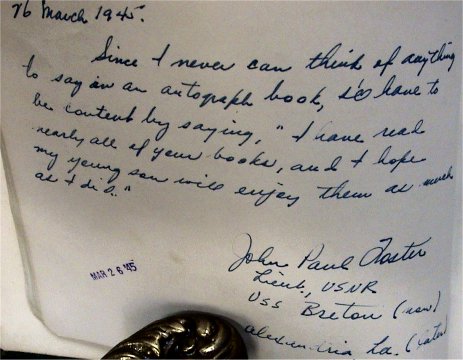 26 March 1945.
Since I never can think of anything
to say in an autograph book, I'll have to
be content by saying, "I have read
nearly all of your books, and I hope
my young son will enjoy them as much
as I did."
John Paul Foster
Lieut, USNR
USS Breton (now)
Alexandria, La. (later)
MAR 26 '45